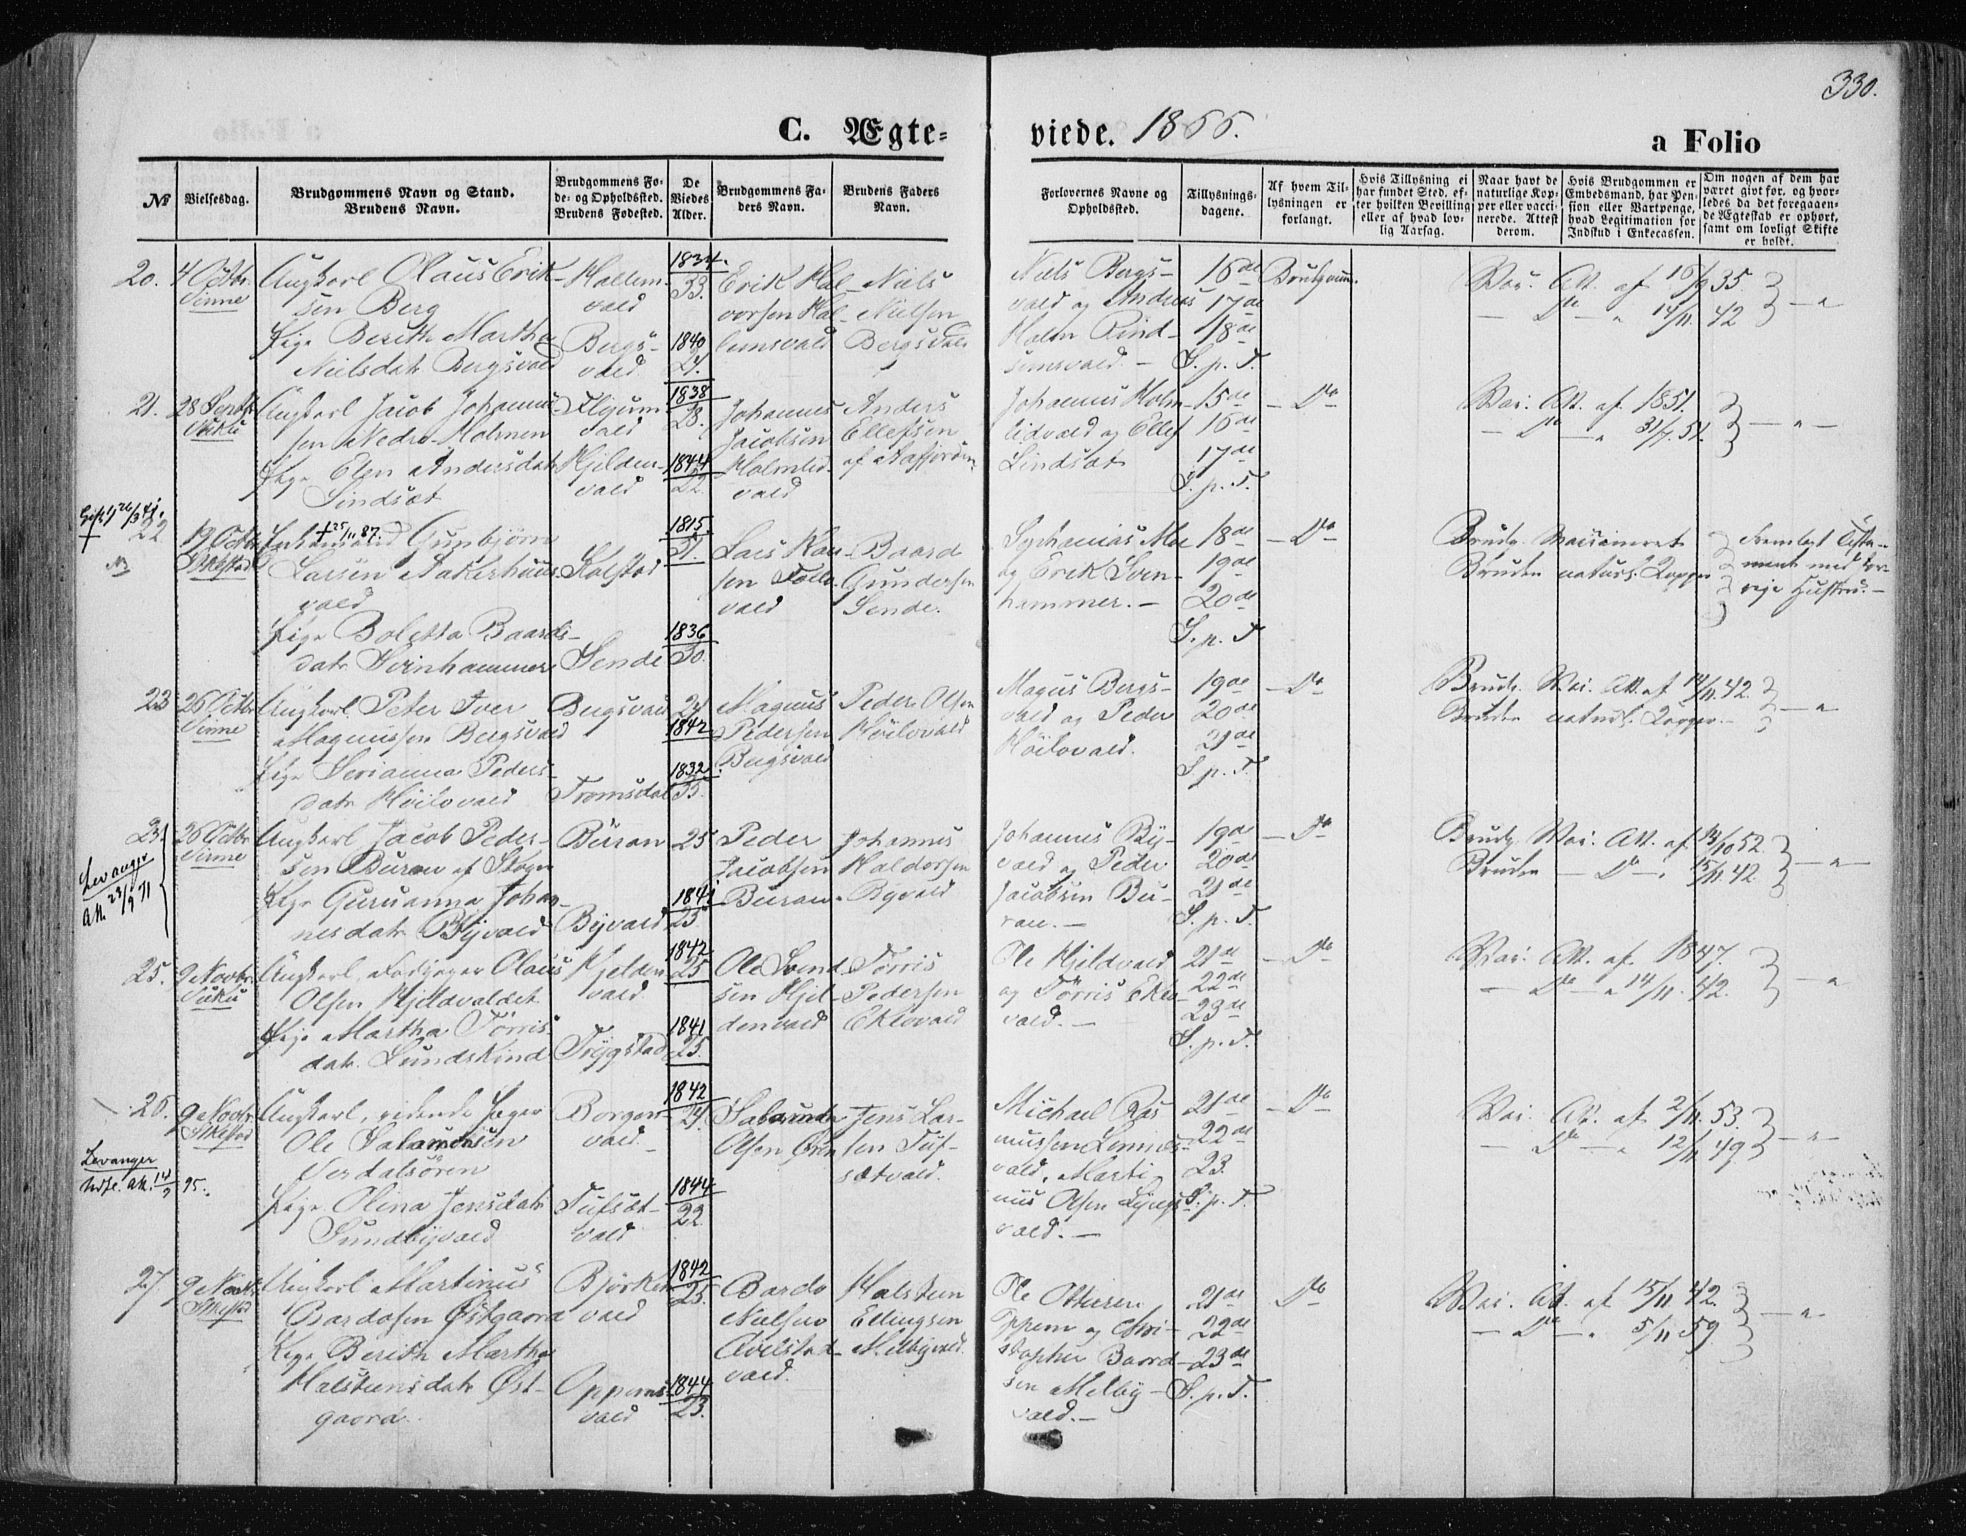 330.
C. Ægte-
viede. 1866.
a Folio
No
Vielsesdag.
Brudgommens Navn og Stand.
Brudens Navn.
Brudgommens Fø-
de- og Opholdssted.
Brudens Fødested.
De
Viedes
Alder.
Brudgommens Fa-
ders Navn.
Brudens Faders
Navn.
Forlovernes Navne og
Opholdssted.
Tillysnings-
dagene.
Af hvem Til-
lysningen er
forlangt.
Hvis Tillysning ei
har fundet Sted, ef-
ter hvilken Bevilling
eller af hvad lov-
lig Aarsag.
Naar havt de
naturlige Kop-
per eller vacci-
nerede. Attest
derom.
Hvis Brudgommen er
Embedsmand, har Pen-
sion eller Vartpenge,
hvad Legitimation for
Indskud i Enkecassen.
Om nogen af dem har
været givt før, og hvor-
ledes da det foregaaen-
de Ægteskab er ophørt,
samt om lovligt Skifte
er holdt.
20.
4 Octbr
Vinne
Ungkarl Olaus Erik-
sen Berg
Pige Berith Martha
Nielsdatr Bergsvald
Hallem-
vald
Bergs-
vald
1834
33.
1840
Erik Hal-
vorsen Hal-
lemsvald
Niels
Nielsen
Bergsvald
Niels Bergs-
vald og Andreas
Holm Rind-
semsvald. —
16de
17de
18de
S. p. T.
Brudgommen
Vac. Att. af 16/9 35
— Do — " 14/11. 42
— "
21.
28 Septbr
Vuku
Ungkarl Jacob Johannes-
sen Nedre-Holmen
Pige Elen Andersdatr
Lindsæt
vald
Hjelden-
vald
1838
28.
1844
22.
Johannes
Jacobsen
Holmlid-
vald
Anders
Ellefsen
Johannes Holm-
lidvald og Ellef
Lindsæt
15de
16de
17de
S. p. T.
— Do
Vac. Att. af 1851.
— Do — " 31/7. 51.
— " —
22
19 Octbr
Stiklestad
+ 25/11 87.
Gunbjørn
Larsen
vald
Pige Boletta Baards-
datr Svinhammer
Kolstad
Sende
1815
51.
1836
30.
Lars
vald
Baard
Gundersen
Sende.
og Erik Svin-
hammer. —
18de
19de
20de
S. p. T
— Do
Brudg. Vaccineret
Bruden naturl. Kopper
Fremlagt Testa-
ment med for-
rige Hustru. —
23
26 Octbr
Vinne
Ungkarl Peter Iver
Magnussen Bergsvald
Pige Serianna Peders-
datr Höilovald
Bergsvald
Tromsdal
24
1842
1832
33.
Magnus
Pedersen
Bergsvald
Peder Olsen
Höilovald
Magnus Bergs-
vald og Peder
Höilovald.
19de
20de
21de
S. p. T.
— Do
Brudg. Vac. Att. af 14/11. 42.
Bruden naturl. Kopper. —
— "
Levanger
26 Octbr
Vinne
Ungkarl Jacob Peder-
sen Buran af Skogn
Pige Guruanna Johan-
nesdatr Byvald
Buran
Byvald
25
1841
25
Peder
Jacobsen
Buran
Johannes
Haldorsen
Byvald
Johannes By-
vald og Peder
Jacobsen Bu-
ran. —
19de
20de
21de
S. p. T
— Do
Brudg. Vac. Att. af 14/10 52.
Bruden — Do — " 15/11. 42
— " —
25.
9 Novbr
Vuku
Ungkarl, Fodjæger Olaus
Olsen Hjeldvaldet
Pige Martha Tørris-
datr. Lundskind
Hjelden-
vald.
Trygstad
1842
25
1841
25.
Ole Svend-
sen Hjel-
denvald
Tørris
Pedersen
Eklovald
Ole Hjeldvald
og Tørris Eklo-
vald. —
21de
22de
23de
S. p. T.
— Do
Vac. Att. af 1847.
— Do — " 14/11. 42.
— "
26.
9 Novbr
Stiklestad
Ungkarl, ridende Jæger
Ole
Verdalsören
Pige Olina Jensdatr
Sundbyvald
Borgen-
vald.
Tufsæt-
vald
1842
24
1844
22.
Olsen
Jens Lar-
sen Tuf-
sætvald.
Michael Ras-
mussen
vald, Marti-
nus Olsen
vald. —
21de
22de
23
S. p. T.
— Do
Vac. Att. af 2/11. 53.
— Do — " 12/11 49
— "
Levanger
95.
27
9 Novbr
Stiklestad
Ungkarl Martinus
Bardosen Østgaard
Pige Berith Martha
Halstensdatr Øst-
gaard
Björken
vald
Oppems-
vald
1842
25.
1844
23.
Bardo
Nielsen
vald.
Halsten
Ellingsen
Melbyvald.
Ole
Oppem og Chri-
stopher Baard-
sen Melby-
vald. —
21de
22de
23de
S. p. T.
Do
Vac. Att. af 15/11 42.
— Do — " 5/11 59
— "